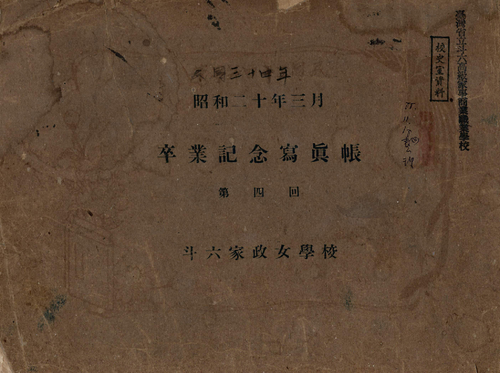 民國三十四年
昭和二十年三月
卒業記念寫眞帳
第四回
斗六家政女學校
校史室資料
臺灣省立斗六高級家事商業職業學校